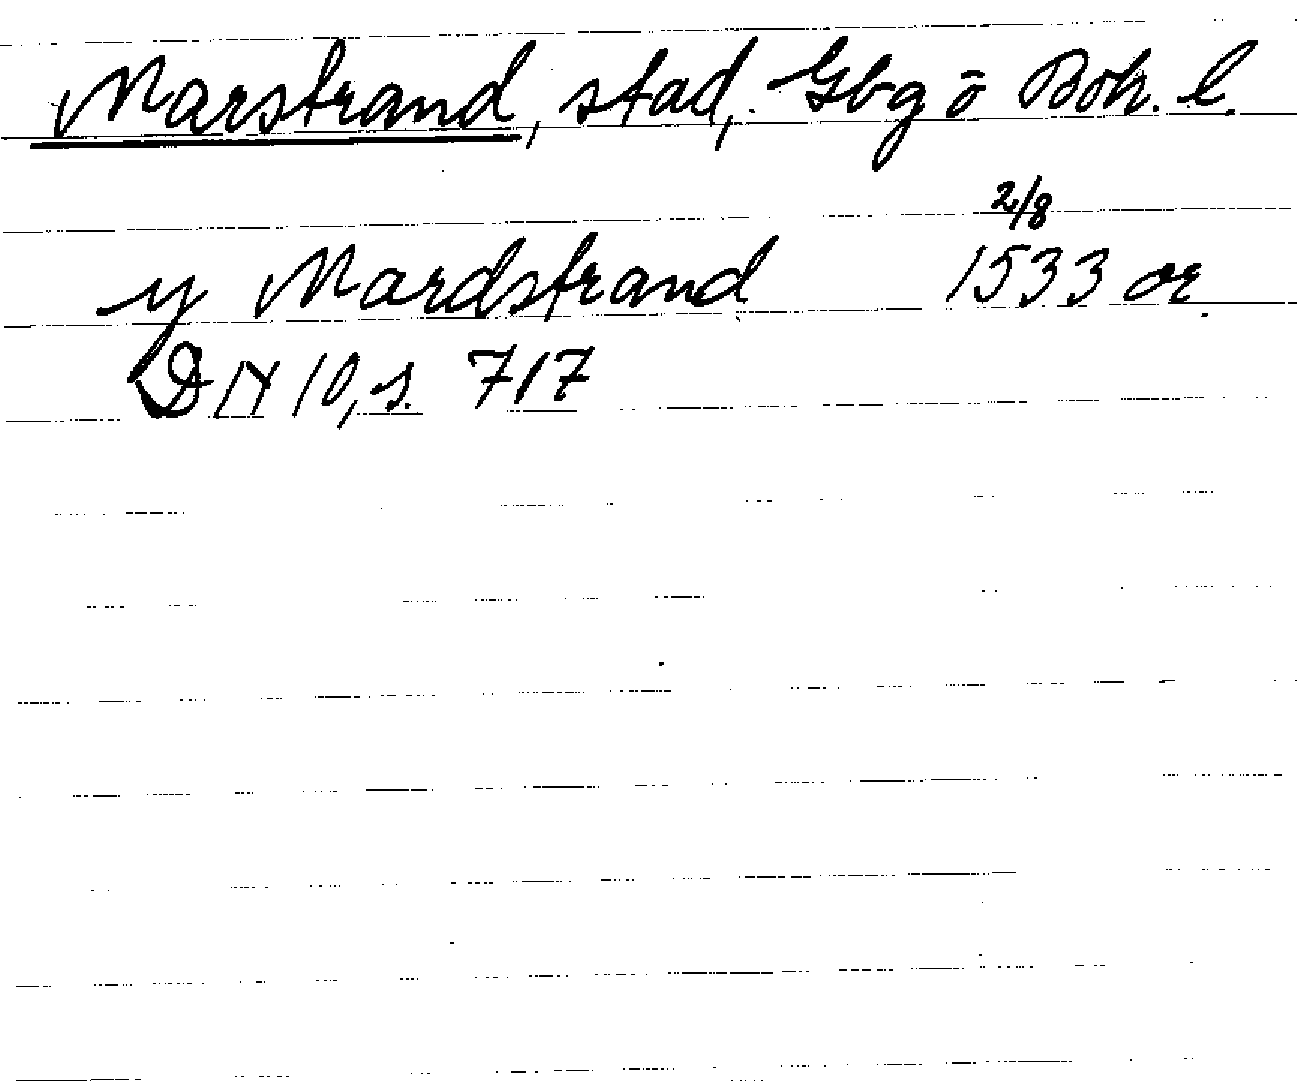 Marstrand, stad, Gbg o Boh. l.
2/8
y Mardstrand 1533 or.
DN 10, s. 717